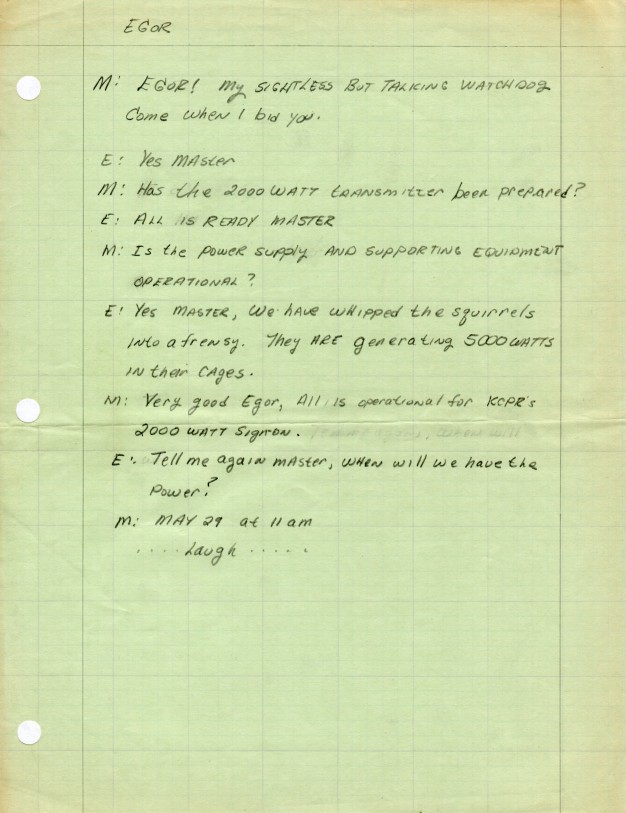 EGOR
M: EGOR! My SIGHTLESS BUT TALKING WATCHDOG
Come when I bid you.
E: Yes MASter
M: Has the 2000 WATT tRANSmitter been prepared?
E: ALL IS READY MASTER
M: Is the power supply AND SUPPORTING EQUIPMENT
OPERATIONAL?
E: Yes MASTER, We have whipped the squirrels
into a frensy. They ARE generating 5000 WATTS
IN their CAges.
M: Very good Egor, All is operational for KCPR's
2000 WATT SigNON.
E: Tell me again mAster, when will we have the
Power?
M: MAY 29 at 11 am
.... Laugh .....